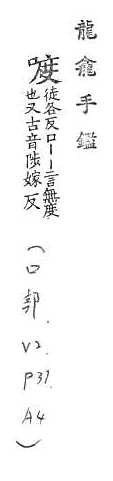 龍龕手鑑
喥 徒各反口ーー言無度
也又古音陟嫁反
(口部.
V2.
P37.
A4)